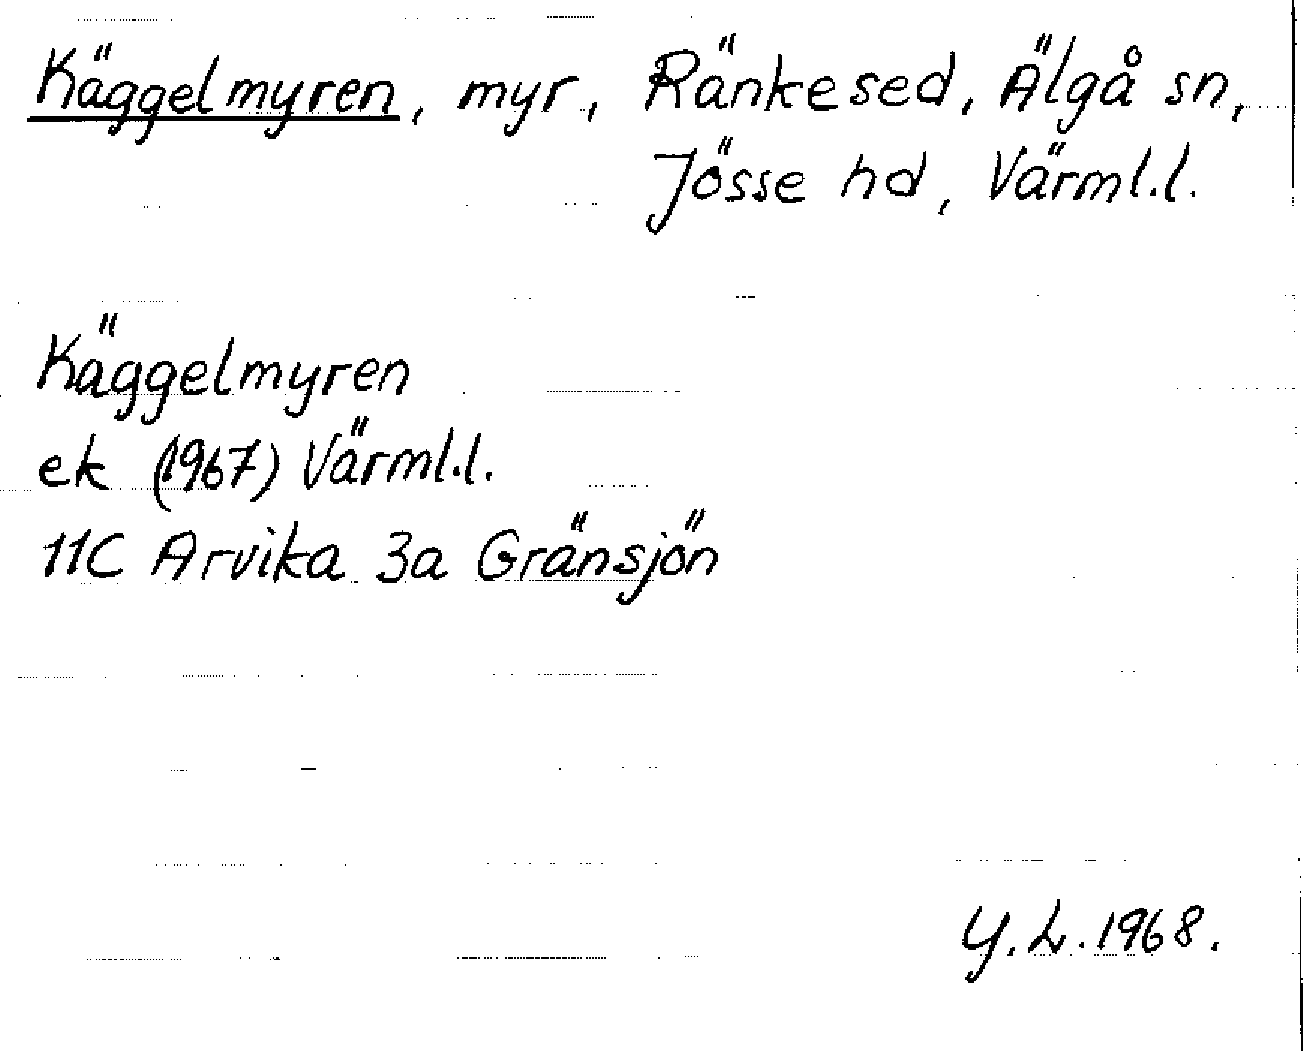 Käggelmyren, myr, Ränkesed, Älgå sn,
Jösse hd, Värml.l.
Käggelmyren
ek (1967) Värml.l.
11C Arvika 3a Gränsjön
Y.L.1968.